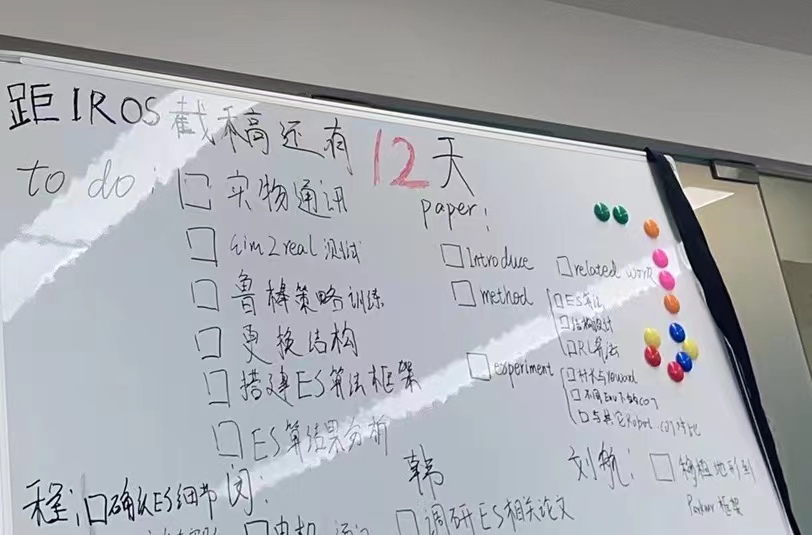 距IROS截稿还有12天
to do: 实物通讯
sim2real 测试
鲁棒策略训练
更换结构
搭建ES算法框架
ES算结果分析
paper:
Introduce
related work
method
ES算法
结构设计
RL算法
experiment
不同Env下的COT
与其它Robot COT对比
程: 确认ES细节
闵:
韩
调研ES相关论文
刘航:
地形到
Parkour 框架